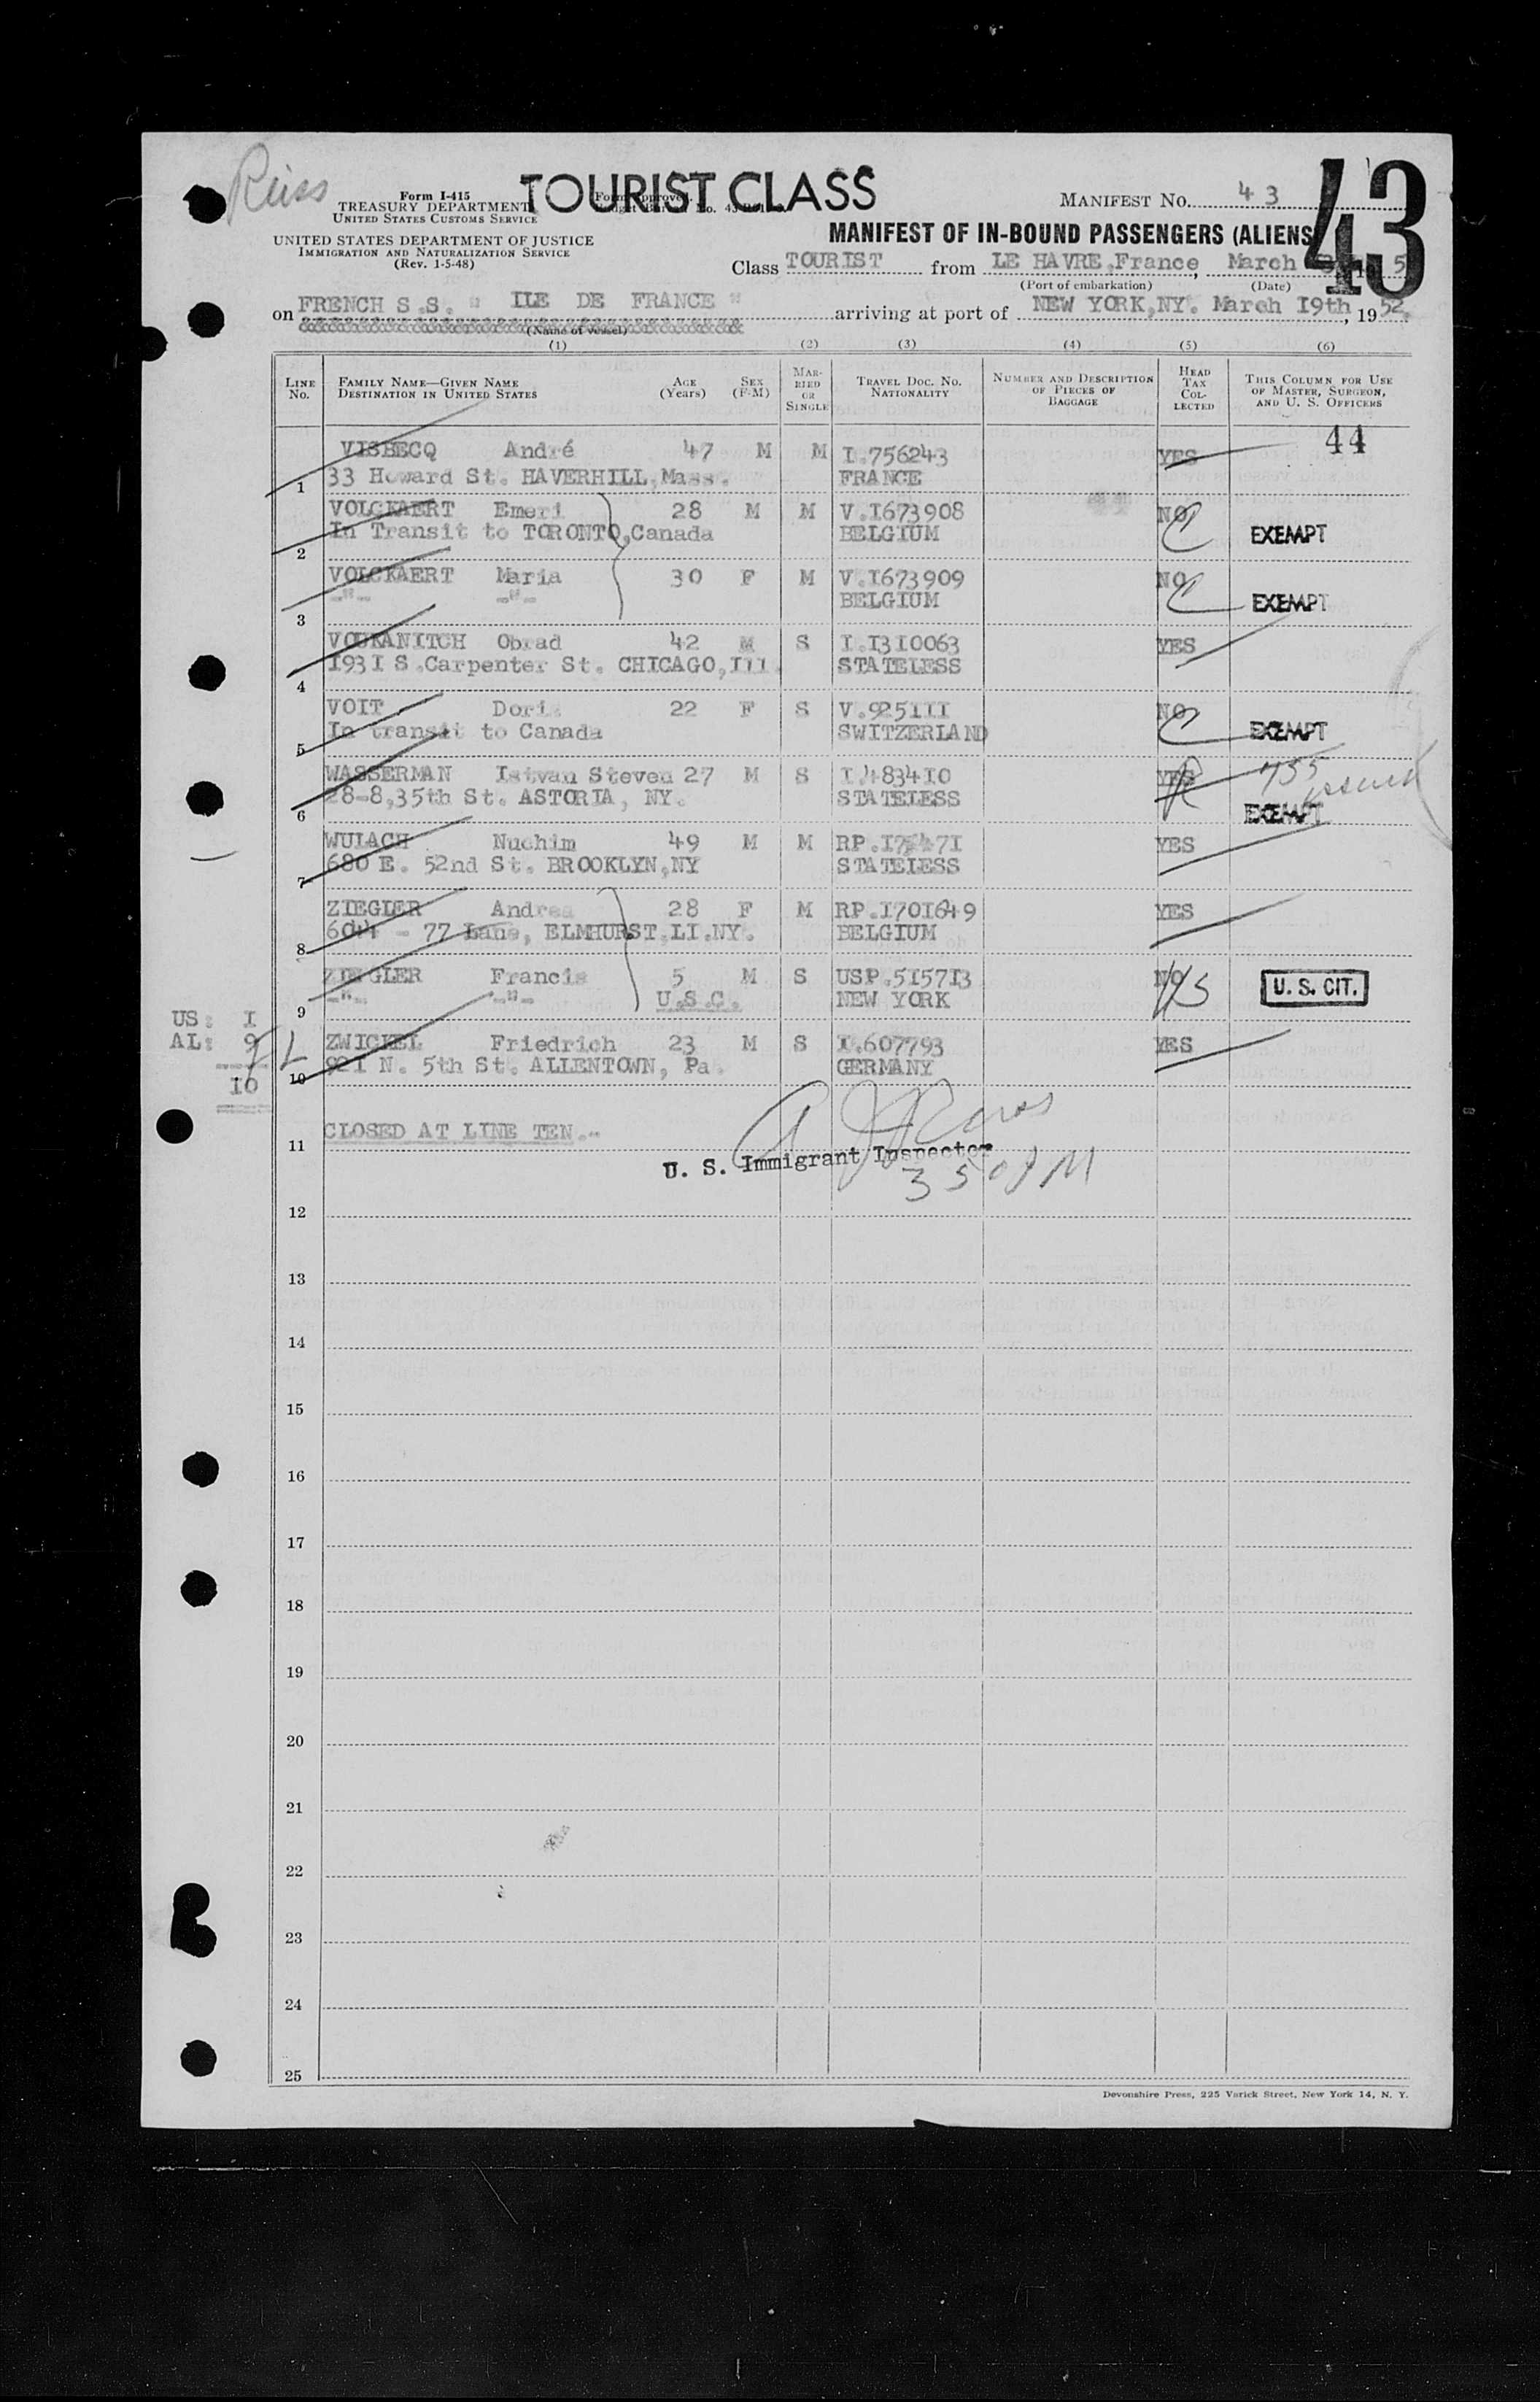 Reiss
TOURIST CLASS
43
Form I-415
TREASURY DEPARTMENT
UNITED STATES CUSTOMS SERVICE
UNITED STATES DEPARTMENT OF JUSTICE
IMMIGRATION AND NATURALIZATION SERVICE
(Rev. 1-5-48)
Form approved.
MANIFEST No. 43
MANIFEST OF IN-BOUND PASSENGERS (ALIENS
Class TOURIST from LE HAVRE,France, March
(Port of embarkation) (Date)
on FRENCH S.S. " ILE DE FRANCE " arriving at port of NEW YORK,NY. March I9th, 1952.
(Name of vessel)
(1) (2) (3) (4) (5) (6)
LINE No. FAMILY NAME—GIVEN NAME DESTINATION IN UNITED STATES AGE (Years) SEX (F-M) MARRIED OR SINGLE TRAVEL DOC. NO. NATIONALITY NUMBER AND DESCRIPTION OF PIECES OF BAGGAGE HEAD TAX COLLECTED THIS COLUMN FOR USE OF MASTER, SURGEON, AND U. S. OFFICERS
44
VISBECQ André 47 M M I.756243 YES
1 33 Howard St. HAVERHILL,Mass. FRANCE
VOLCKAERT Emeri 28 M M V.I673908 NO
2 In Transit to TORONTO,Canada BELGIUM EXEMPT
VOLCKAERT Maria 30 F M V.I673909 NO
3 -"- -"- BELGIUM EXEMPT
VOUKANITCH Obrad 42 M S I.I3I0063 YES
4 I93I S.Carpenter St. CHICAGO,Ill. STATELESS
VOIT Doris 22 F S V.925III NO
5 In transit to Canada SWITZERLAND EXEMPT
WASSERMAN Istvan Steven 27 M S I.4834I0 YES 455 issued
6 28-8,35th St. ASTORIA, NY. STATELESS EXEMPT
WULACH Nuchim 49 M M YES
7 680 E. 52nd St. BROOKLYN,NY STATELESS
ZIEGLER Andrea 28 F M RP.I70I649 YES
8 - 77 Lane, ELMHURST.LI.NY. BELGIUM
ZIEGLER Francis 5 M S USP.5I57I3 NO US U. S. CIT.
9 -"- -"- U.S.C. NEW YORK
US: I
AL: 9
IO
ZWICKEL Friedrich 23 M S I.607793 YES
10 92I N. 5th St. ALLENTOWN, Pa. GERMANY
11 CLOSED AT LINE TEN.-
U. S. Immigrant Inspector
350 PM
12
13
14
15
16
17
18
19
20
21
22
23
24
25
Devonshire Press, 225 Varick Street, New York 14, N. Y.